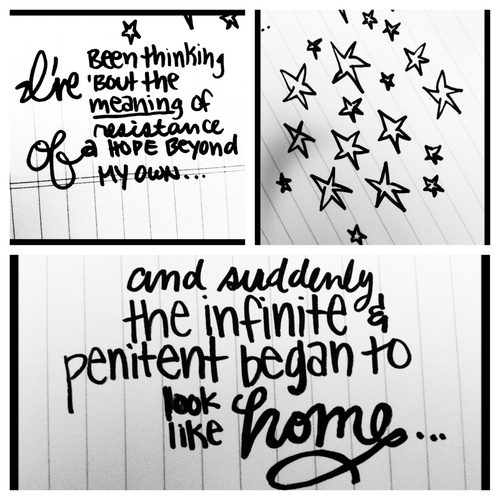 I've Been thinking
'Bout the
meaning of
resistance
Of a HOPE BEYOND
MY OWN...
and suddenly
the infinite &
penitent began to
look
like home...